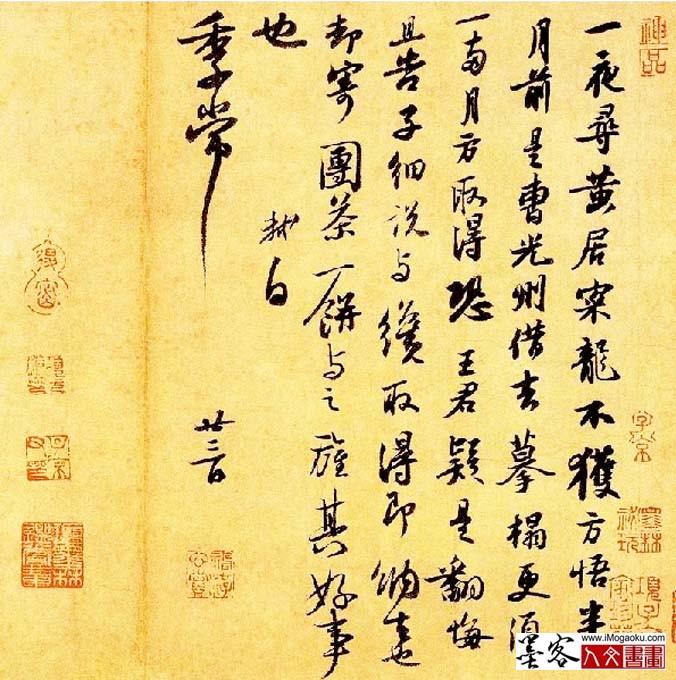 一夜尋黃居寀龍不獲方悟半
月前是曹光州借去摹搨更須
一兩月方取得恐王君疑是翻悔
且告子細說与纔取得即納去也
却寄團茶一餅与之旌其好事
也
軾白
季常
廿三日
神品
子京
www.iMogaoku.com
墨客
人文書畫